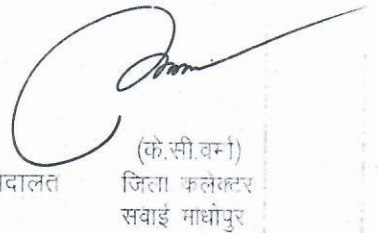 (के.सी.वर्मा)
दालत जिला कलेक्टर
सवाई माधोपुर